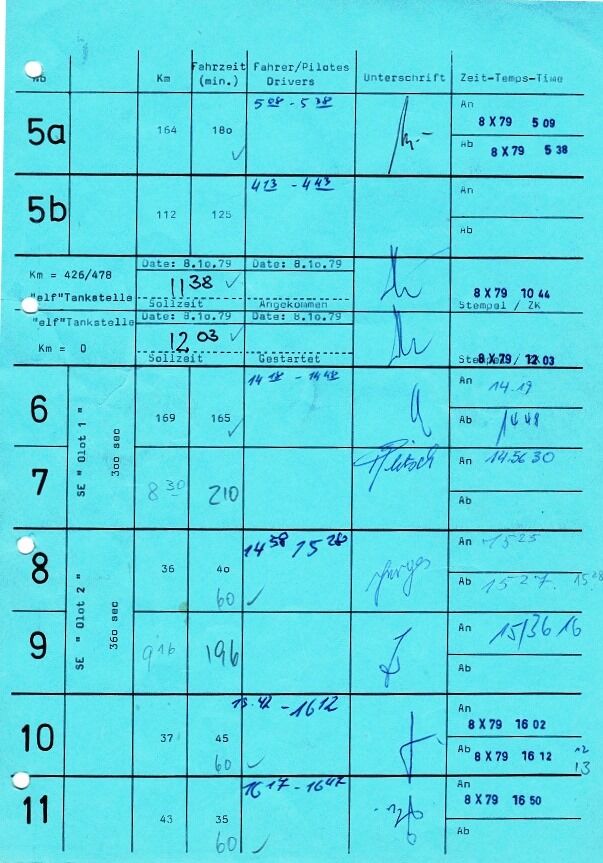 Km Fahrzeit (min.) Fahrer/Pilotes Drivers Unterschrift Zeit-Temps-Time
5a 164 180 5 08 - 5 38 An 8 X 79 5 09
Ab 8 X 79 5 38
5b 112 125 4 13 - 4 43 An
Ab
Km = 426/478 Date: 8.10.79 Date: 8.10.79
11 38 8 X 79 10 44
"elf"Tankstelle Sollzeit Angekommen Stempel / ZK
"elf"Tankstelle Date: 8.10.79 Date: 8.10.79
12 03
Km = 0 Sollzeit Gestartet 8 X 79 12 03
6 169 165 14 18 - 14 48 An 14.19
Ab 14 48
SE " Olot 1 "
300 sec
7 8 30 210 An 14.56 30
Ab
8 36 40 14 58 15 28 An 15 25
60 Ab 15 27. 15 28
SE " Olot 2 "
360 sec
9 9 16 196 An 15/36 16
Ab
10 37 45 15.42 - 16 12 An 8 X 79 16 02
60 Ab 8 X 79 16 12
13
11 43 35 16 17 - 16 47 An 8 X 79 16 50
60 Ab